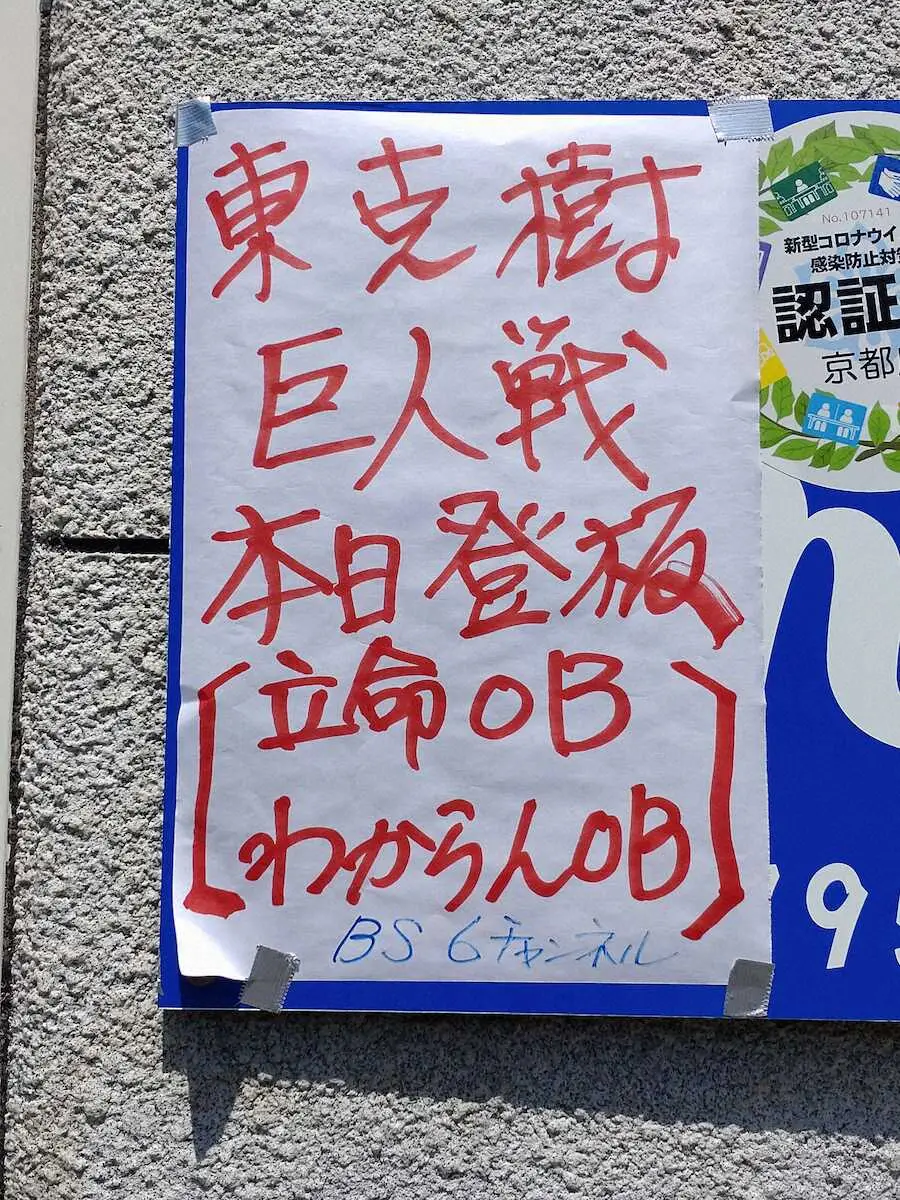 東克樹
巨人戦
本日登板
[立命OB
わからんOB]
BS 6チャンネル
No.107141
新型コロナウイ
感染防止対策
認証
京都
95